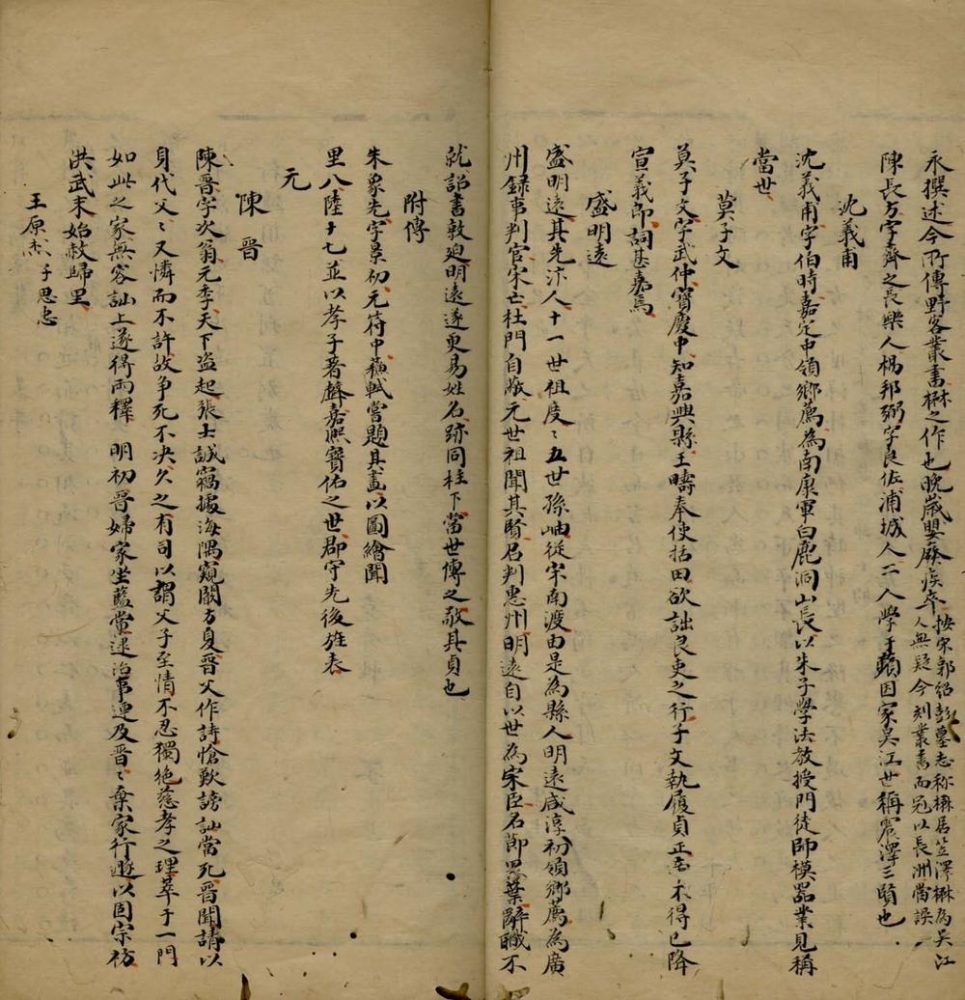 永撰述今所傳野客叢書楙之作也晚歲嬰廢疾卒按宋郭紹彭墓志称楙居笠澤楙為吳江
人無疑今刻叢書而冠以長洲當誤
陳長方字齊之長樂人楊邦弼字良佐浦城人二人學王蘋因家吳江世稱震澤三賢也
沈義甫
沈義甫字伯時嘉定中領鄉薦為南康軍白鹿洞山長以朱子學法教授門徒師模器業見稱
當世
莫子文
莫子文字武仲寶慶中知嘉興縣王疇奉使括田欲詘良吏之行子文執履貞正不得已降
宣義郎詞甚嘉焉
盛明遠
盛明遠其先汴人十一世祖度〻五世孫岫從宋南渡由是為縣人明遠咸淳初領鄉薦為廣
州錄事判官宋亡杜門自放元世祖聞其賢召判惠州明遠自以世為宋臣名節思葉辭職不
就詔書敦廹明遠遂更易姓名跡同柱下當世傳之敬其貞也
附傳
朱象先字景初元符中蘓軾嘗題其畫以圖繪聞
里八陸十七並以孝子著聲嘉熙寶佑之世郡守先後旌表
元
陳晋
陳晋字次翁元季天下盗起張士誠竊據海隅窺闞方夏晋父作詩愴歎謗訕當死晋聞請以
身代父〻又憐而不許故争死不决久之有司以謂父子至情不忍獨絶慈孝之理萃于一門
如此之家無容訕上遂得兩釋 明初晋婦家坐藍黨逮治事連及晋〻棄家行遯以固宗祊
洪武末始赦歸里
王原杰子思忠